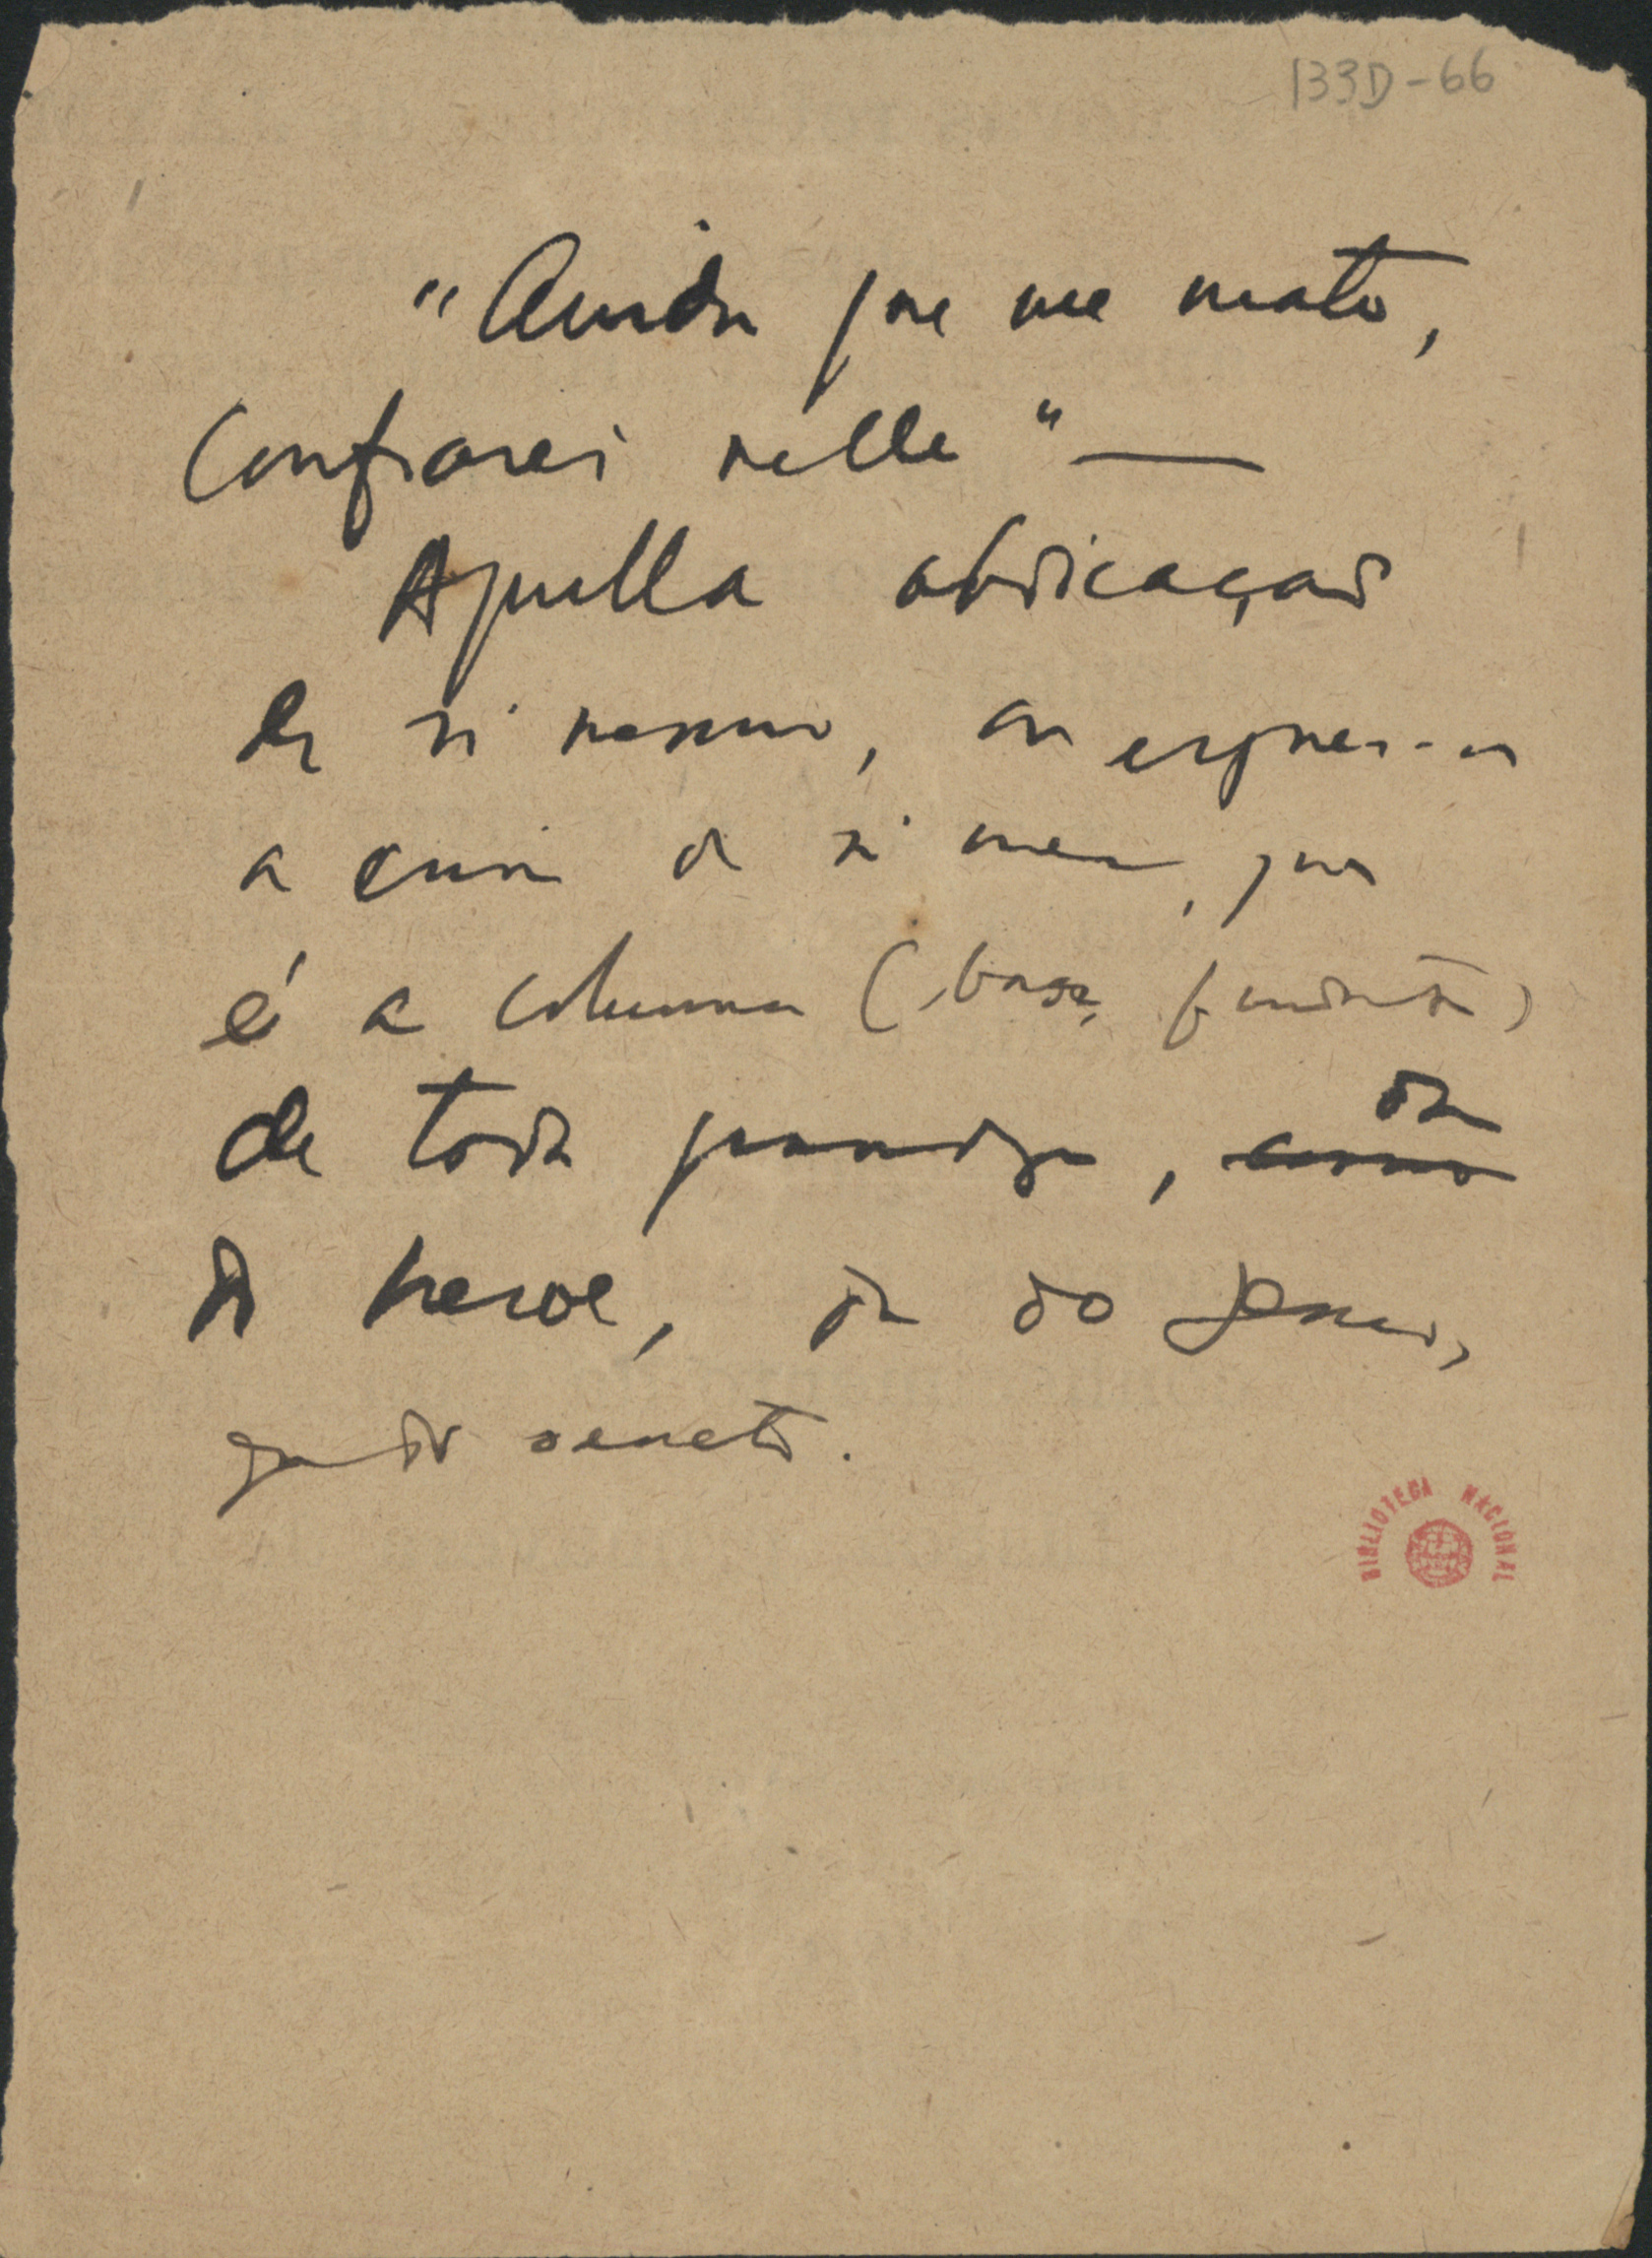 133D-66
"Ainda que me mate,
confiarei nelle" —
Aquella abdicação
de si mesmo, ou erguer-se
a cima de si mesmo, que
é a columna (, base,
de toda grandeza, da
do heroe, da do genio,
da do santo.
BIBLIOTECA NACIONAL